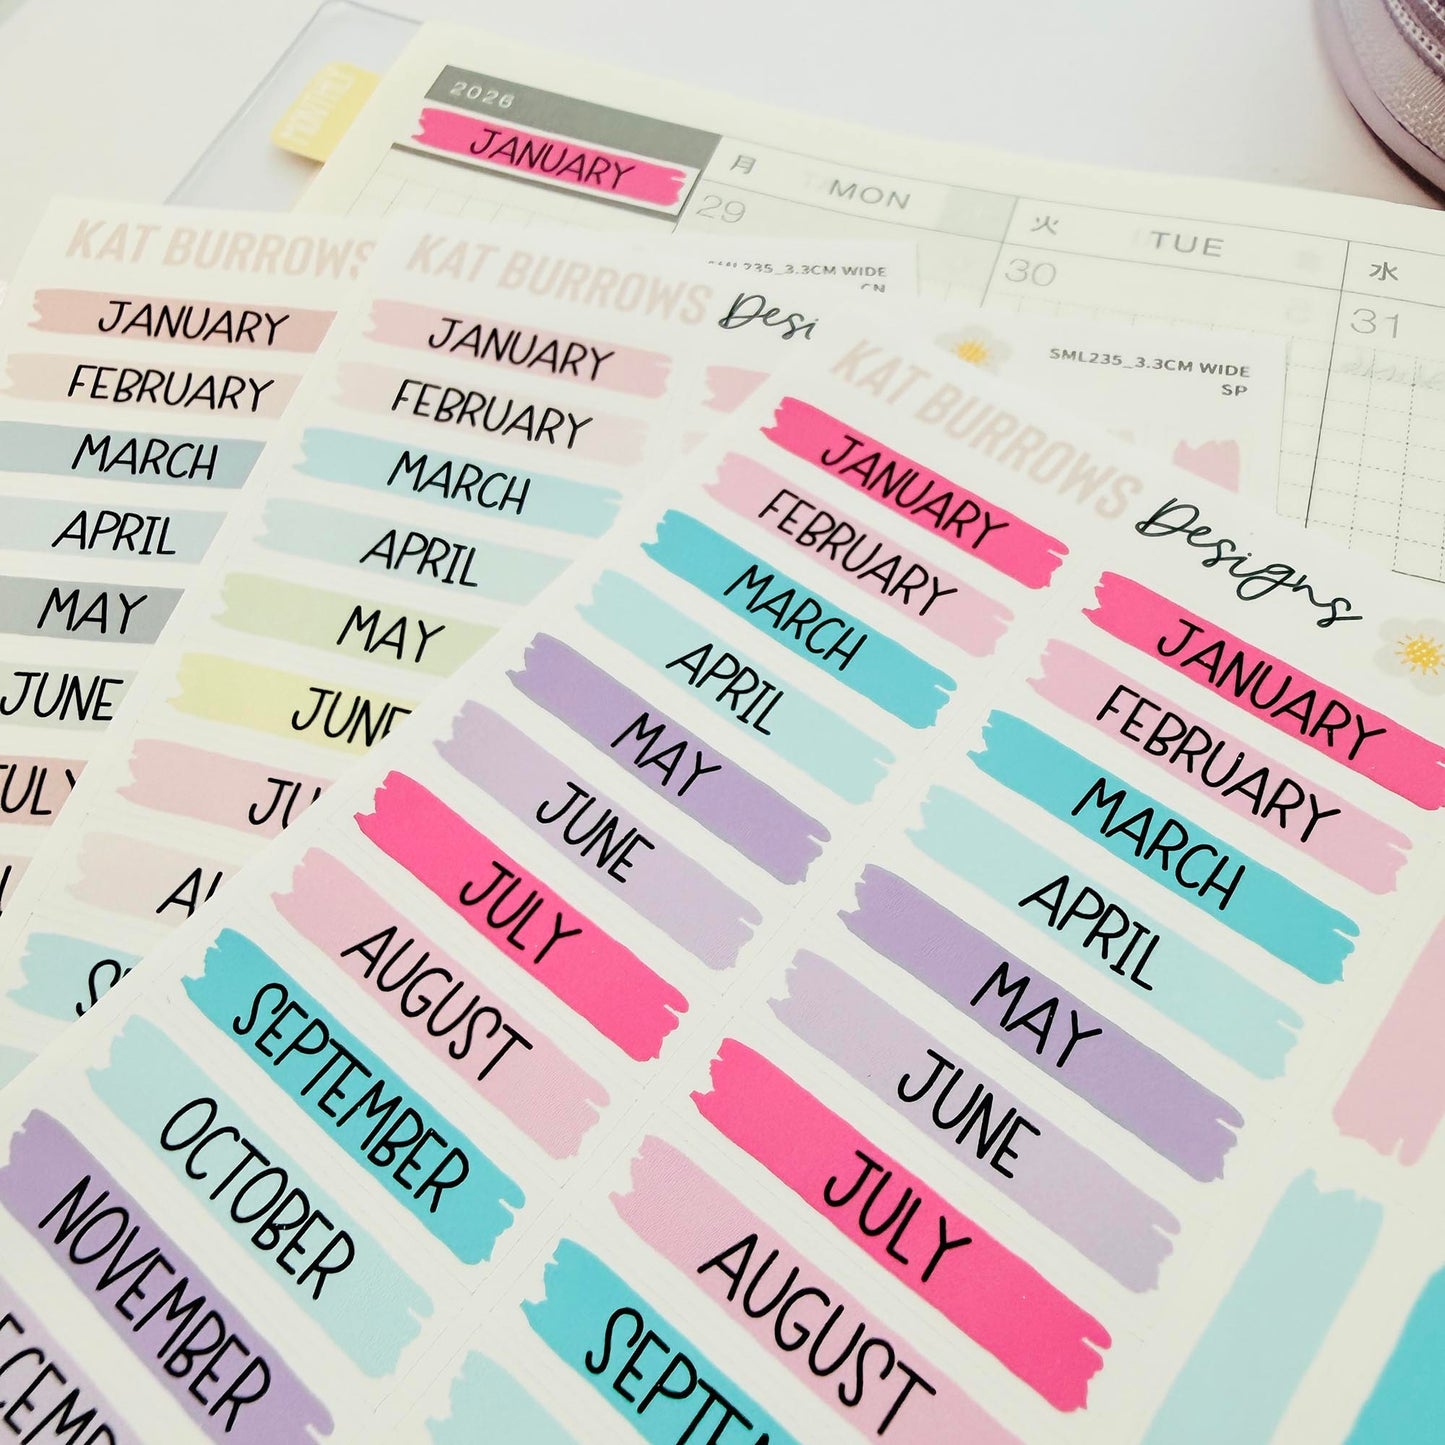 MONTHLY
2026
JANUARY
月 MON
火 TUE
水
29
30
31
KAT BURROWS
JANUARY
FEBRUARY
MARCH
APRIL
MAY
JUNE
KAT BURROWS
3.3CM WIDE
JANUARY
FEBRUARY
MARCH
APRIL
MAY
KAT BURROWS
Designs
SML235_3.3CM WIDE
SP
JANUARY
FEBRUARY
MARCH
APRIL
MAY
JUNE
JULY
AUGUST
SEPTEMBER
OCTOBER
NOVEMBER
JANUARY
FEBRUARY
MARCH
APRIL
MAY
JUNE
JULY
AUGUST